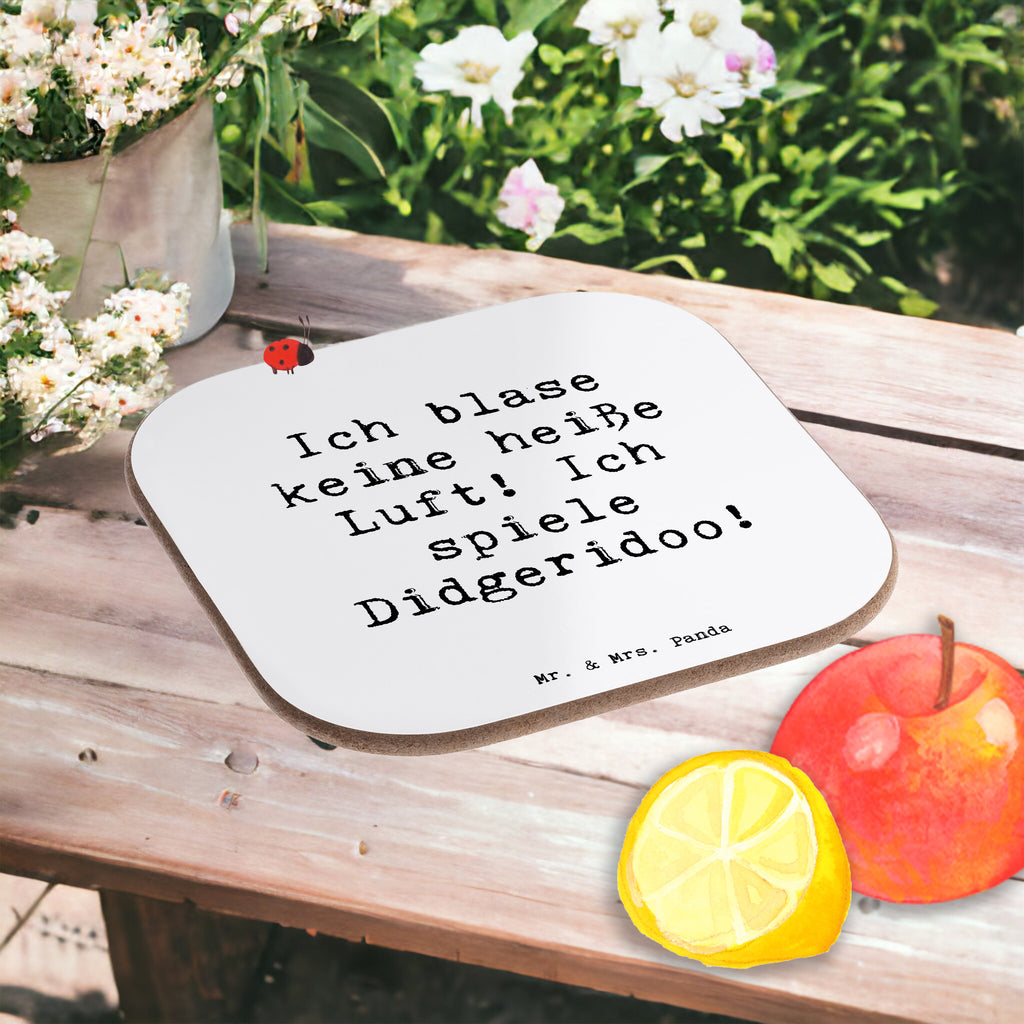 Ich blase
keine heiße
Luft! Ich
spiele
Didgeridoo!
Mr. & Mrs. Panda